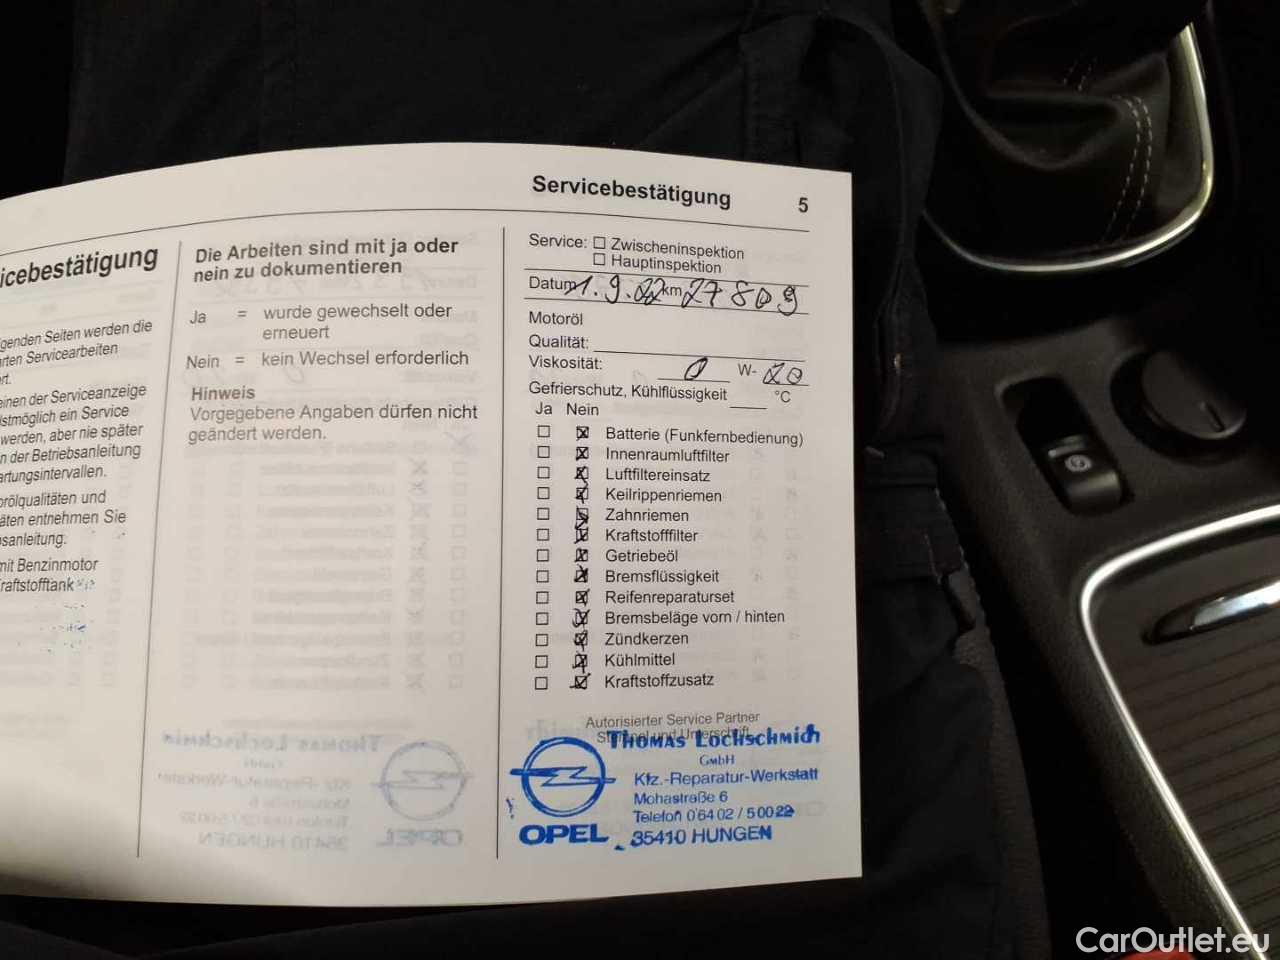 icebestätigung
genden Seiten werden die
rten Servicearbeiten
rt.
einen der Serviceanzeige
stmöglich ein Service
werden, aber nie später
n der Betriebsanleitung
artungsintervallen.
orölqualitäten und
äten entnehmen Sie
sanleitung.
mit Benzinmotor
raftstofftank
Die Arbeiten sind mit ja oder
nein zu dokumentieren
Ja = wurde gewechselt oder
erneuert
Nein = kein Wechsel erforderlich
Hinweis
Vorgegebene Angaben dürfen nicht
geändert werden.
Servicebestätigung 5
Service: Zwischeninspektion
Hauptinspektion
Datum 1.9.22 km 27809
Motoröl
Qualität:
Viskosität: 0 W- 20
Gefrierschutz, Kühlflüssigkeit °C
Ja Nein
Batterie (Funkfernbedienung)
Innenraumluftfilter
Luftfiltereinsatz
Keilrippenriemen
Zahnriemen
Kraftstofffilter
Getriebeöl
Bremsflüssigkeit
Reifenreparaturset
Bremsbeläge vorn / hinten
Zündkerzen
Kühlmittel
Kraftstoffzusatz
Autorisierter Service Partner
Stempel und Unterschrift
Thomas Lochschmidt
GmbH
Kfz.-Reparatur-Werkstatt
Mohastraße 6
Telefon 06402/50022
OPEL 35410 HUNGEN
CarOutlet.eu